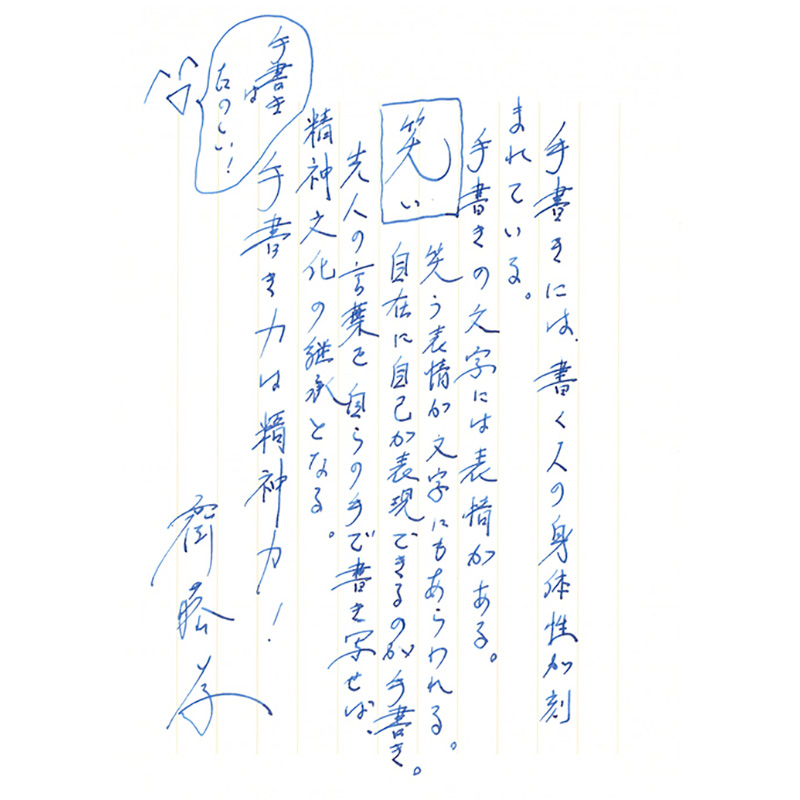 手書きには、書く人の身体性が刻
まれている。
手書きの文字には表情がある。
笑い
笑う表情が文字にもあらわれる。
自在に自己が表現できるのが手書き。
先人の言葉を自らの手で書き写せば、
精神文化の継承となる。
手書き力は精神力!
手書きは
たのしい!
齋藤孝